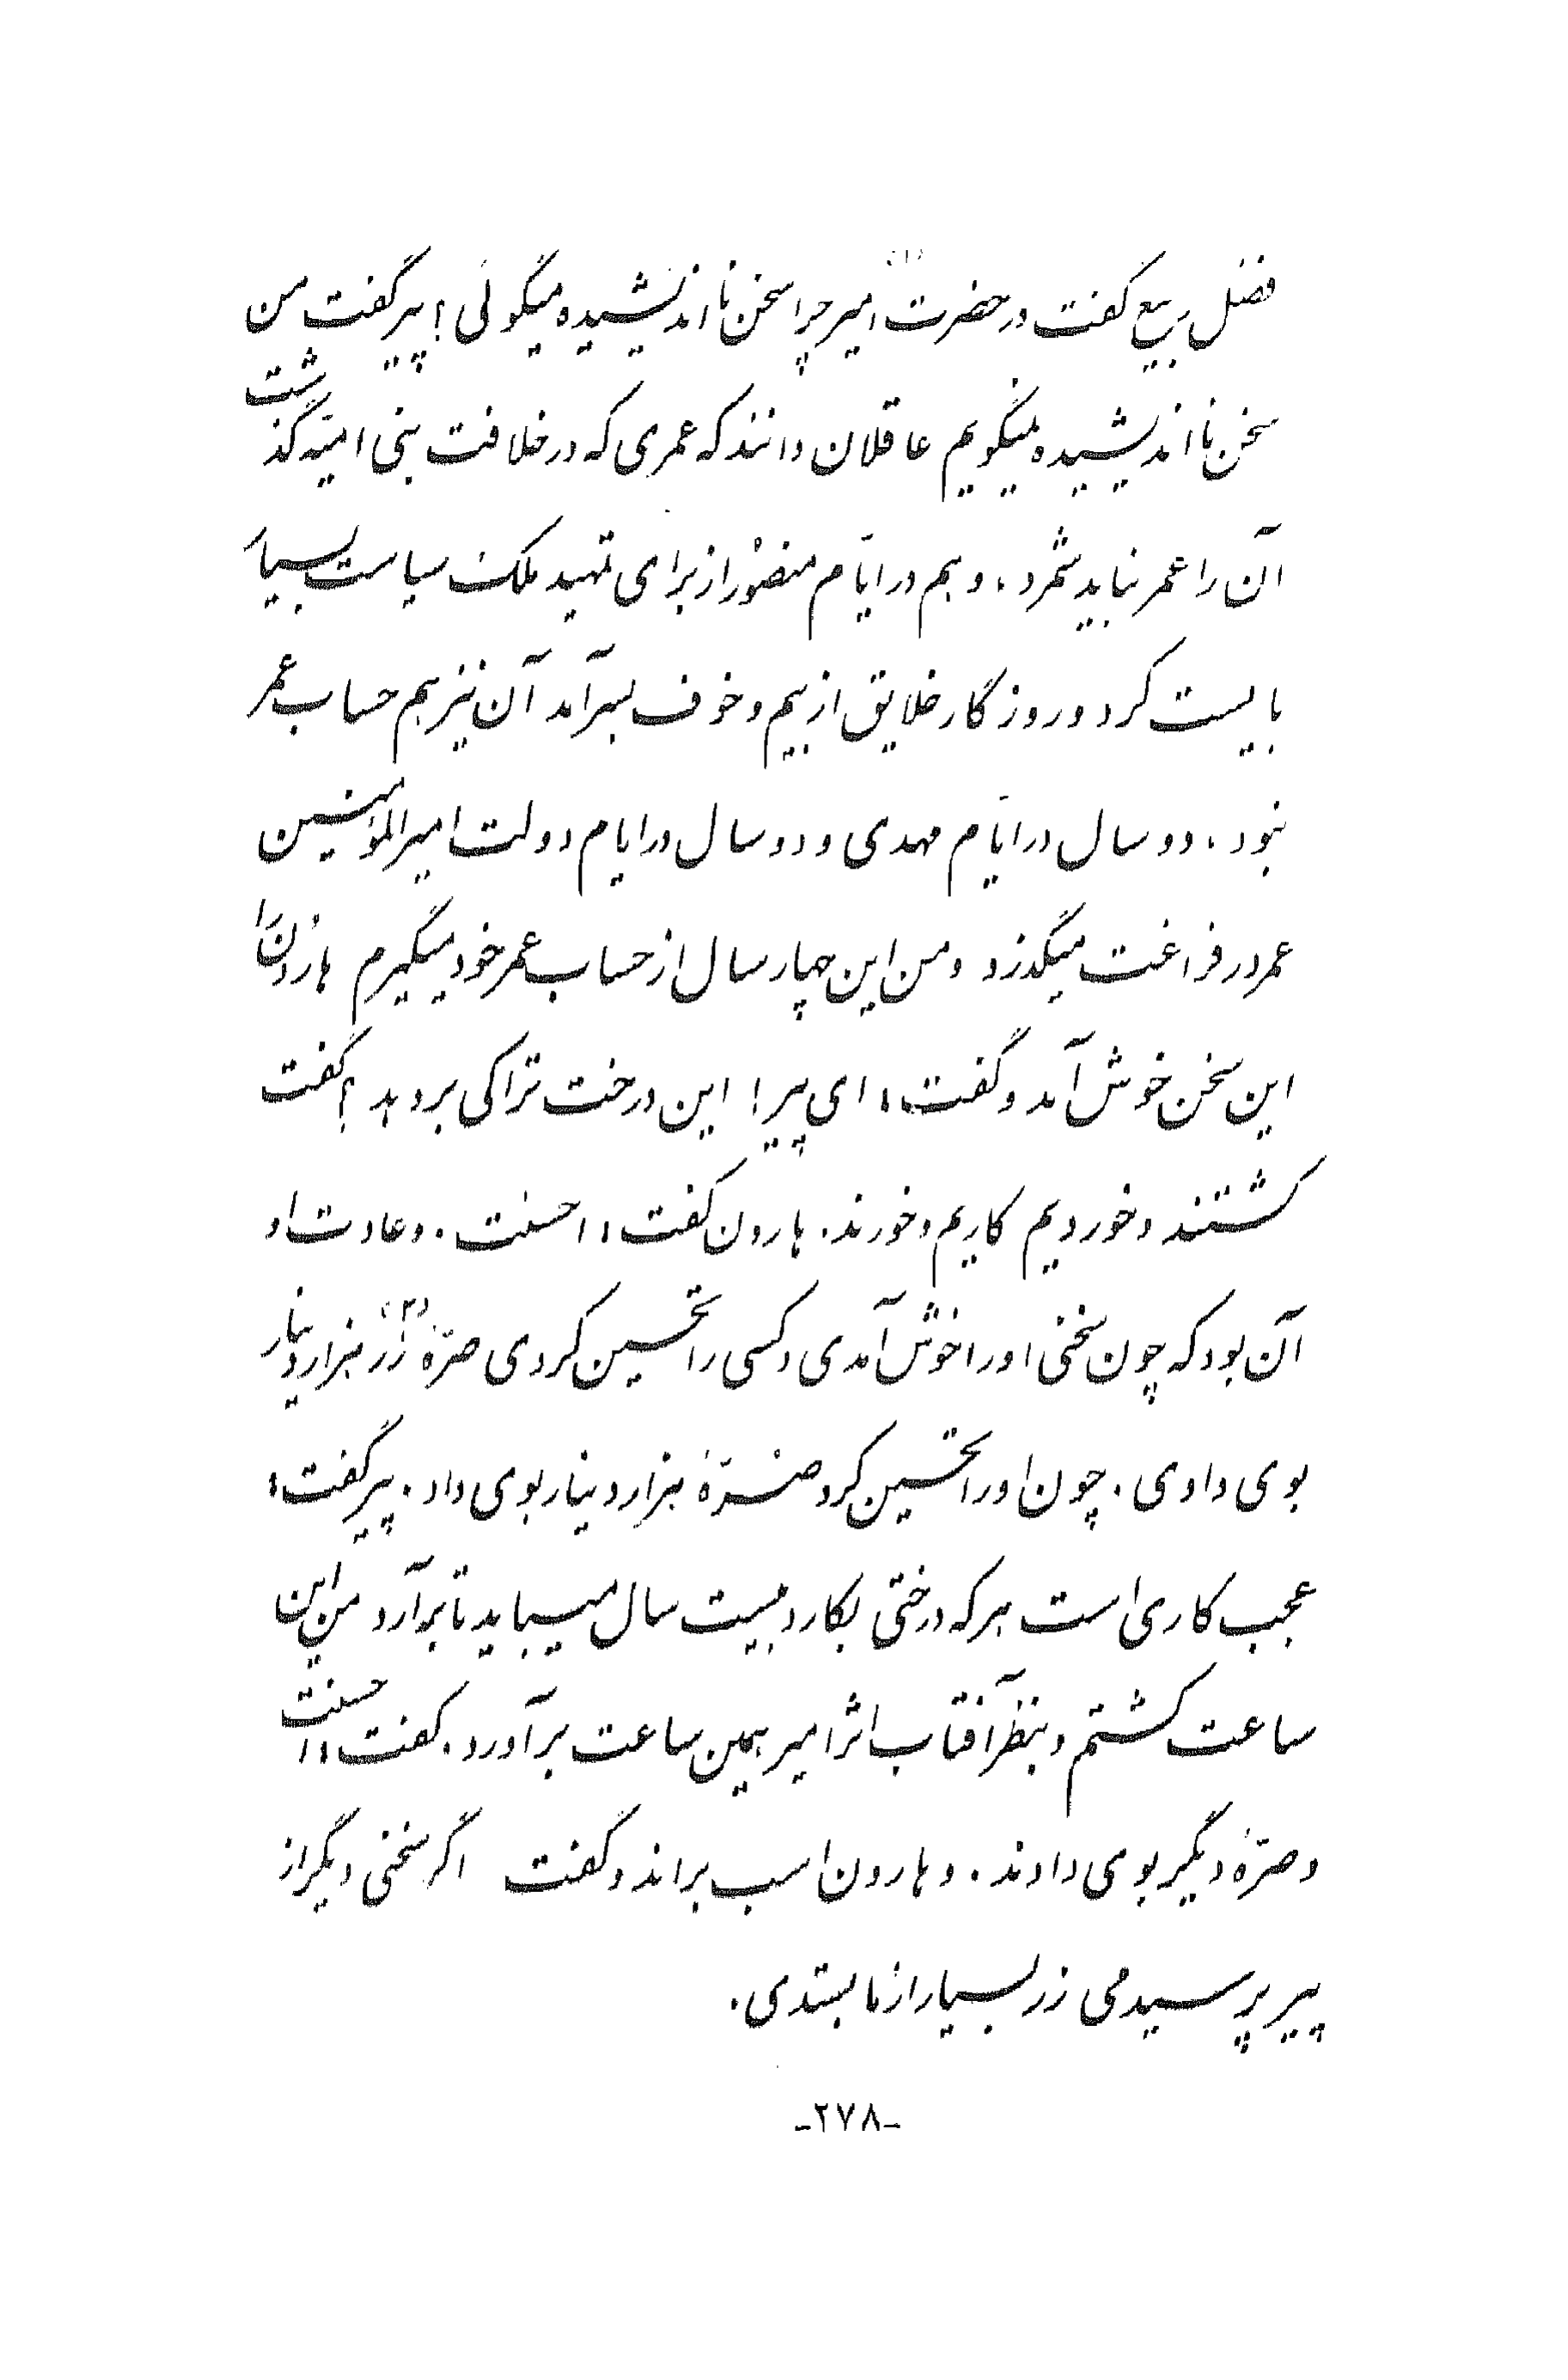 فضل ربیع گفت در حضرت (۱) امیر چرا سخن نااندیشیده میگوئی؟ پیر گفت من
سخن نااندیشیده نمیگویم عاقلان دانند که عمری که در خلافت بنی امیّه گذشت
آن را عمر نباید شمرد، و هم در ایّام منصور از برای تمهید ملک سیاست بسیار
بایست کرد و روزگار خلایق از بیم و خوف بسر آمد آن نیز هم حساب عمر
نبود، دو سال در ایّام مهدی و دو سال در ایام دولت امیرالمؤمنین
عمر در فراغت میگذرد و من این چهار سال از حساب عمر خود میگیرم هارون را
این سخن خوش آمد و گفت: ای پیر! این درخت ترا کی بر دهد؟ گفت
کشتند و خوردیم کاریم و خورند. هارون گفت: احسنت. و عادت او
آن بود که چون سخنی او را خوش آمدی و کسی را تحسین کردی صرّهٔ (۲) زر هزار دینار
بوی دادی. چون او را تحسین کرد صرّهٔ هزار دینار بوی داد. پیر گفت:
عجب کاری است هر که درختی بکارد بیست سال میباید تا بر آرد من این
ساعت کشتم و بنظر آفتاب اثر امیر همین ساعت بر آورد. گفت: احسنت
و صرّهٔ دیگر بوی دادند. و هارون اسب براند و گفت اگر سخنی دیگر از
پیر پرسیدمی زر بسیار از ما بستدی.
-۲۷۸-